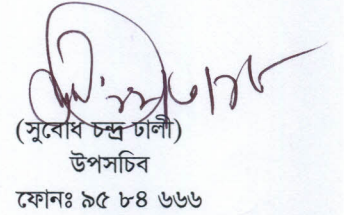 (সুবোধ চন্দ্র ঢালী)
উপসচিব
ফোনঃ ৯৫ ৮৪ ৬৬৬